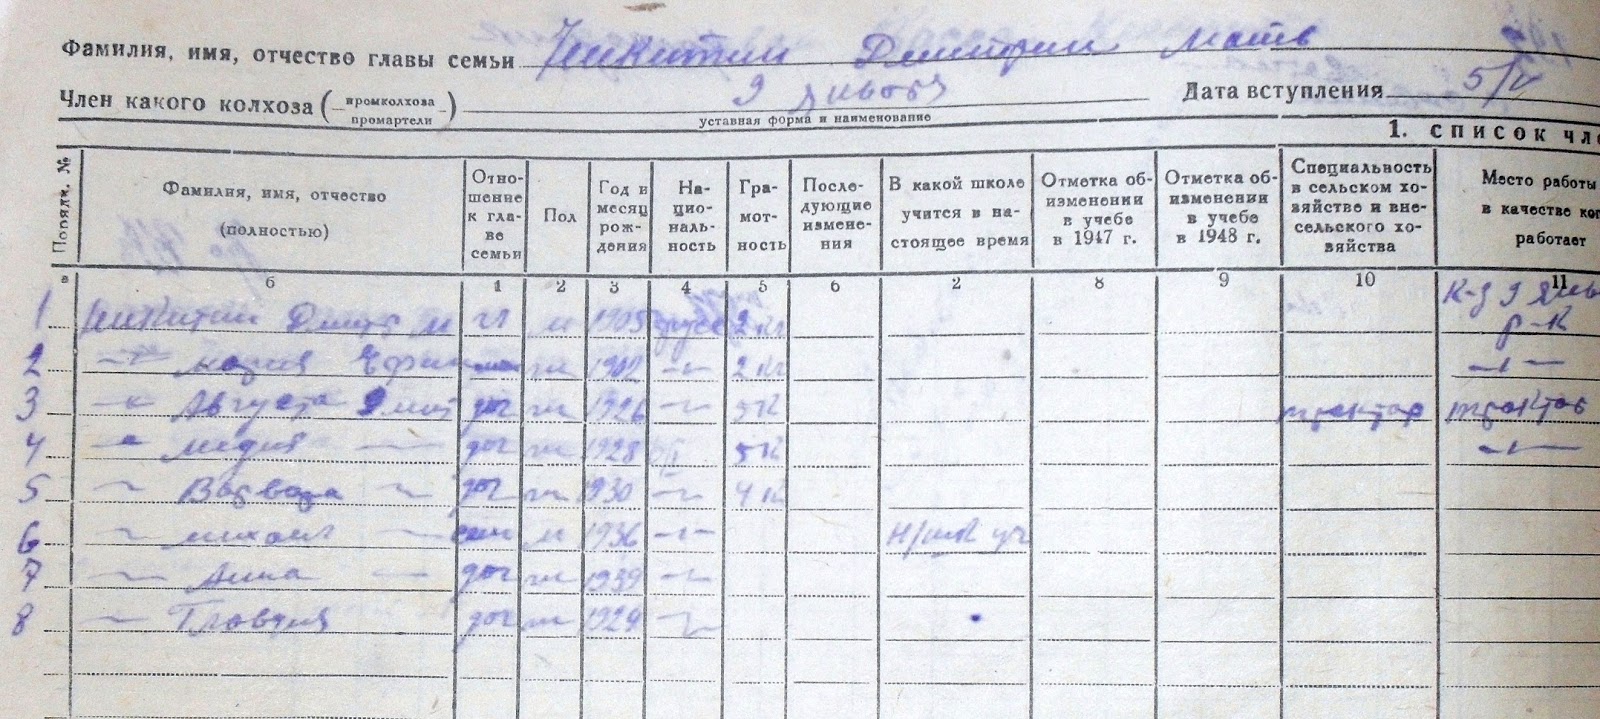 Фамилия, имя, отчество главы семьи Никитин Дмитрий Матв
Член какого колхоза (промколхоза промартели) 9 Января Дата вступления 5/V
уставная форма и наименование
1. СПИСОК ЧЛЕ
Порядк. № Фамилия, имя, отчество (полностью) Отношение к главе семьи Пол Год и месяц рождения Национальность Грамотность Последующие изменения В какой школе учится в настоящее время Отметка об изменении в учебе в 1947 г. Отметка об изменении в учебе в 1948 г. Специальность в сельском хозяйстве и вне сельского хозяйства Место работы в качестве ког работает
а б 1 2 3 4 5 6 2 8 9 10 11
1 Никитин Дмит М гл м 1905 русс 2 кл К-з 9 Янв р-к
2 -"- Мария Ефим ж 1902 -"- 2 кл -"-
3 -"- Августа Дмит доч ж 1926 -"- 5 к трактор трактор
4 -"- Лидия -"- доч ж 1928 5 к -"-
5 -"- Варвара -"- доч ж 1930 -"- 4 к
6 -"- Михаил -"- сын м 1936 -"- н/шк уч
7 -"- Анна -"- доч ж 1939 -"-
8 -"- Главдия доч ж 1929 -"-